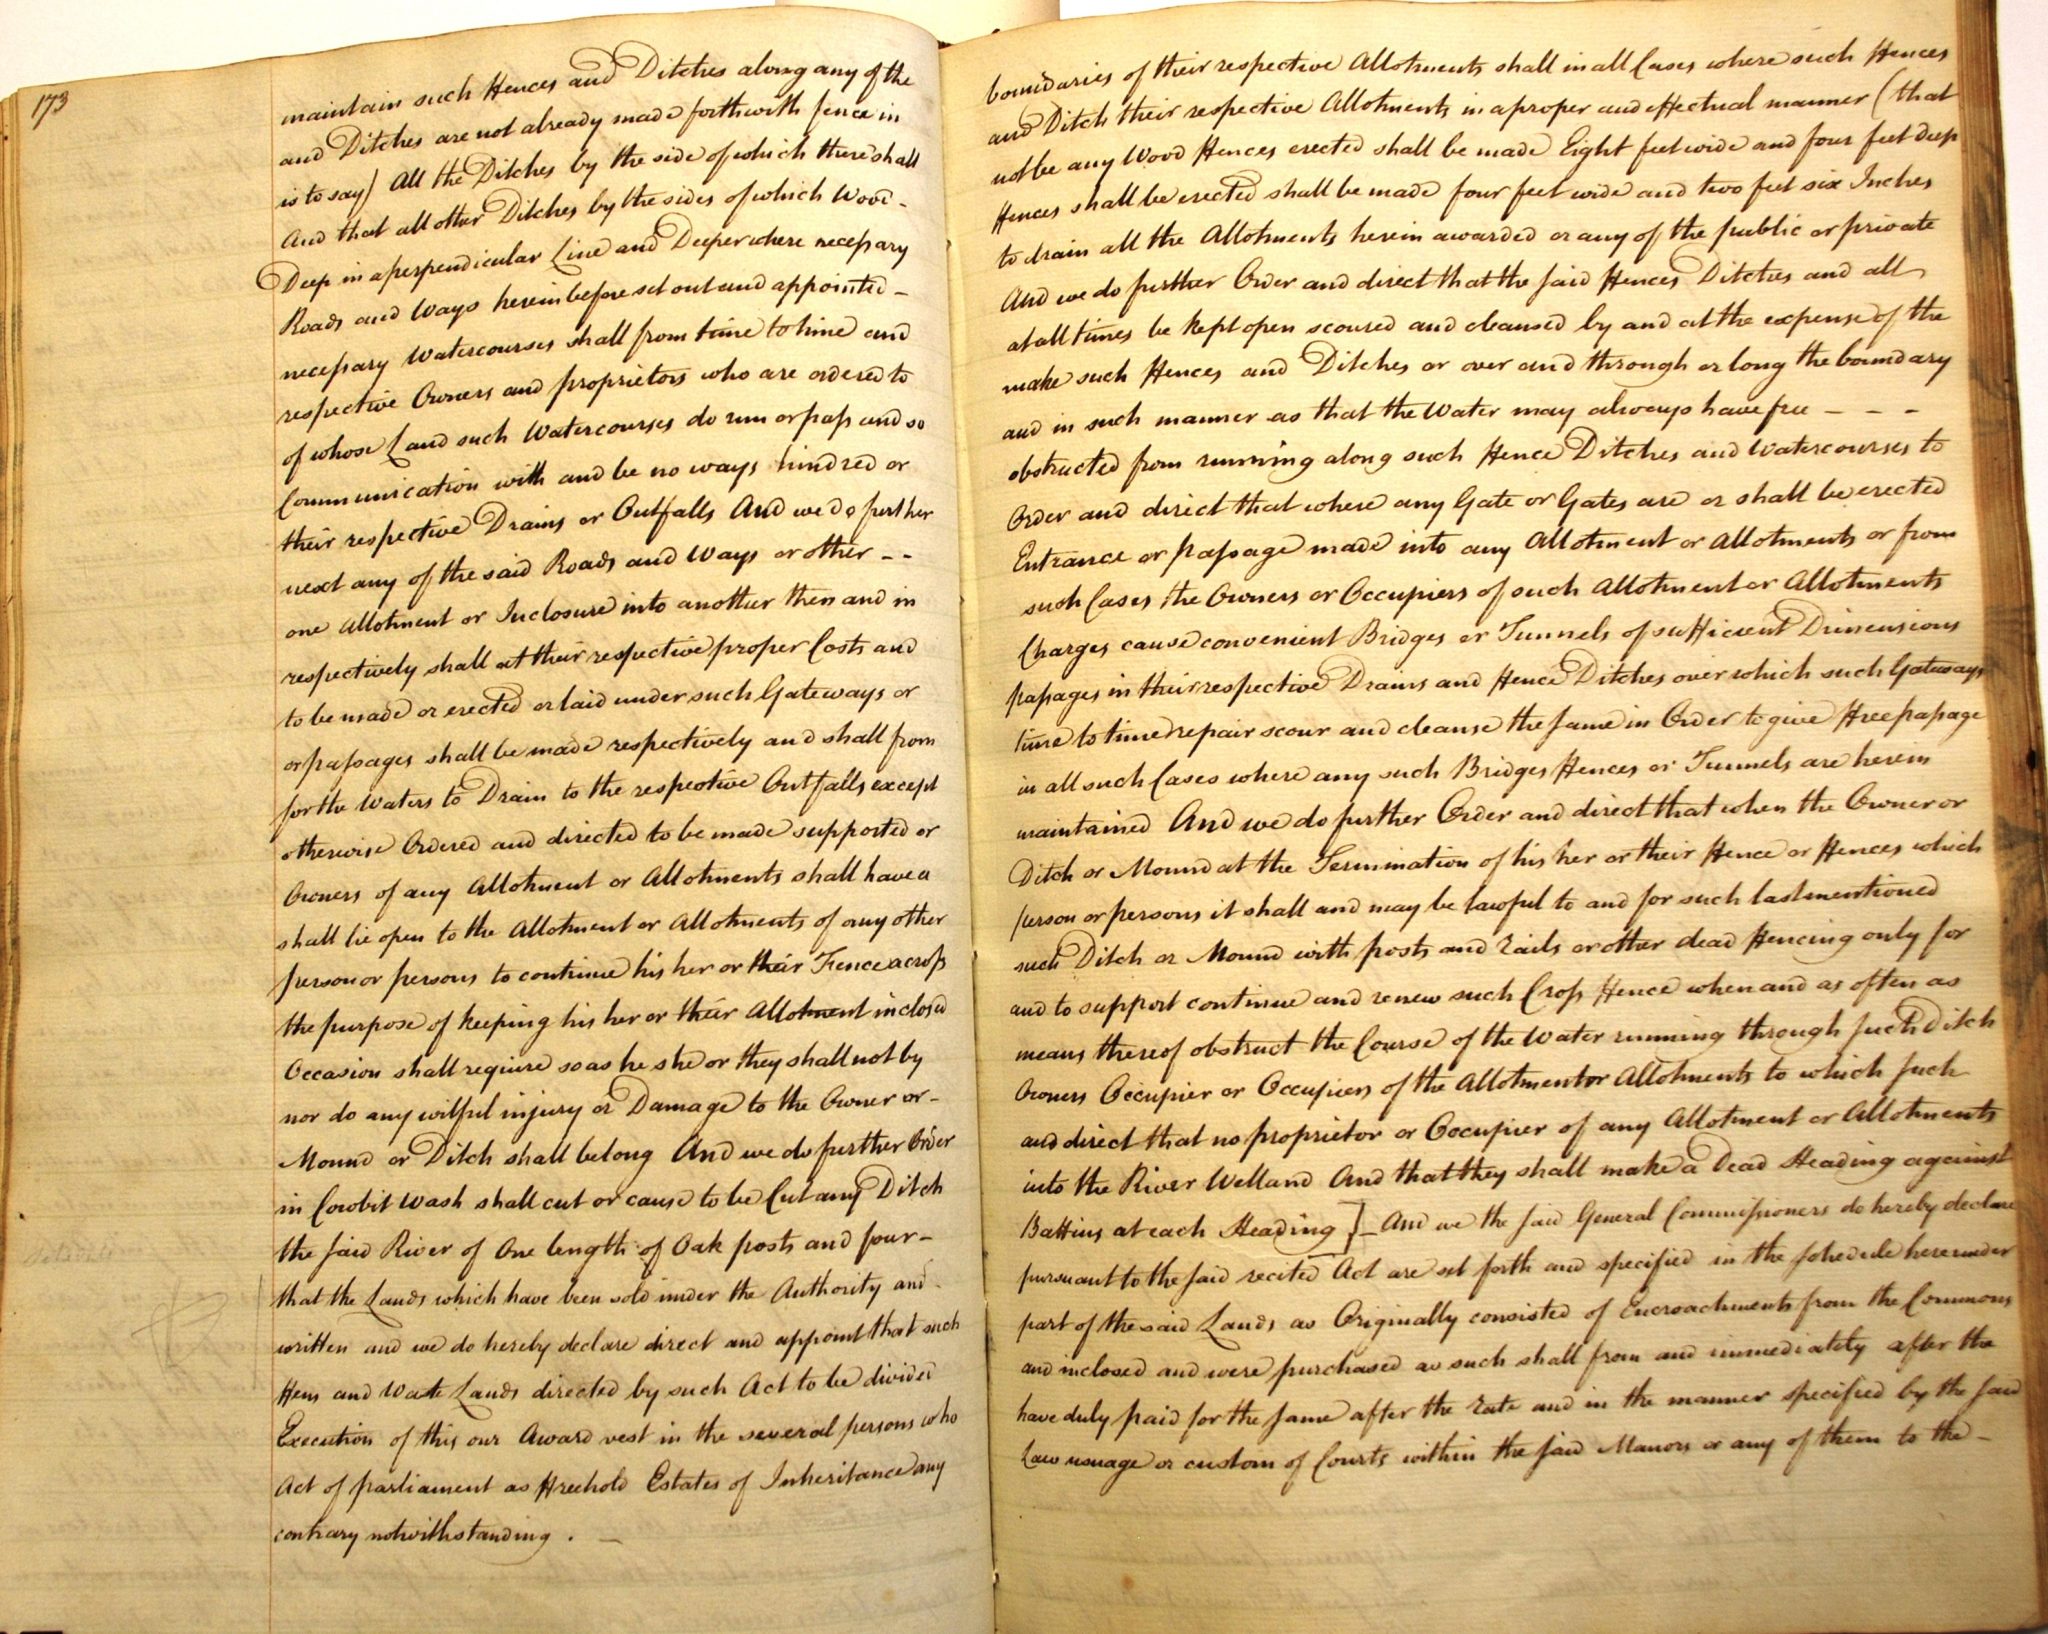 173
maintain such Fences and Ditches along any of the boundaries of their respective Allotments shall in all Cases where such Fences
and Ditches are not already made forthwith fence in and Ditch their respective Allotments in a proper and effectual manner (that
is to say) All the Ditches by the side of which there shall not be any Wood Fences erected shall be made Eight feet wide and four feet deep
And that all other Ditches by the sides of which Wood - Fences shall be erected shall be made four feet wide and two feet six Inches
Deep in a perpendicular Line and Deeper where necessary to drain all the Allotments herein awarded or any of the public or private
Roads and Ways herein before set out and appointed - And we do further Order and direct that the said Fences Ditches and all
necessary Watercourses shall from time to time and at all times be kept open scoured and cleansed by and at the expense of the
respective Owners and proprietors who are ordered to make such Fences and Ditches or over and through or long the boundary
of whose Land such Watercourses do run or pass and so and in such manner as that the Water may always have free - - -
Communication with and be no ways hindred or obstructed from running along such Fence Ditches and Watercourses to
their respective Drains or Outfalls And we do further Order and direct that where any Gate or Gates are or shall be erected
next any of the said Roads and Ways or other - - Entrance or passage made into any Allotment or Allotments or from
one Allotment or Inclosure into another then and in such Cases the Owners or Occupiers of such Allotment or Allotments
respectively shall at their respective proper Costs and Charges cause convenient Bridges or Tunnels of sufficient Dimensions
to be made or erected or laid under such Gateways or passages in their respective Drains and Fence Ditches over which such Gateways
or passages shall be made respectively and shall from time to time repair scour and cleanse the same in Order to give Free passage
for the Waters to Drain to the respective Outfalls except in all such Cases where any such Bridges Fences or Tunnels are herein
otherwise Ordered and directed to be made supported or maintained And we do further Order and direct that when the Owner or
Owners of any Allotment or Allotments shall have a Ditch or Mound at the Termination of his her or their Fence or Fences which
shall lie open to the Allotment or Allotments of any other person or persons it shall and may be lawful to and for such lastmentioned
person or persons to continue his her or their Fence across such Ditch or Mound with posts and rails or other dead Fencing only for
the purpose of keeping his her or their Allotment inclosed and to support continue and renew such Cross Fence when and as often as
Occasion shall require so as he she or they shall not by means thereof obstruct the Course of the Water running through such Ditch
nor do any wilful injury or Damage to the Owner or - Owners Occupier or Occupiers of the Allotment or Allotments to which such
Mound or Ditch shall belong And we do further Order and direct that no proprietor or Occupier of any Allotment or Allotments
in Cowbit Wash shall cut or cause to be Cut any Ditch into the River Welland And that they shall make a Dead Heading against
the said River of One length of Oak posts and four - Battins at each Heading ] - And we the said General Commissioners do hereby declare
that the Lands which have been sold under the Authority and - pursuant to the said recited Act are set forth and specified in the schedule hereunder
written and we do hereby declare direct and appoint that such part of the said Lands as Originally consisted of Encroachments from the Commons
Fens and Waste Lands directed by such Act to be divided and inclosed and were purchased as such shall from and immediately after the
Execution of this our Award vest in the several persons who have duly paid for the same after the rate and in the manner specified by the said
Act of parliament as Freehold Estates of Inheritance any Law usuage or custom of Courts within the said Manors or any of them to the -
contrary notwithstanding . -